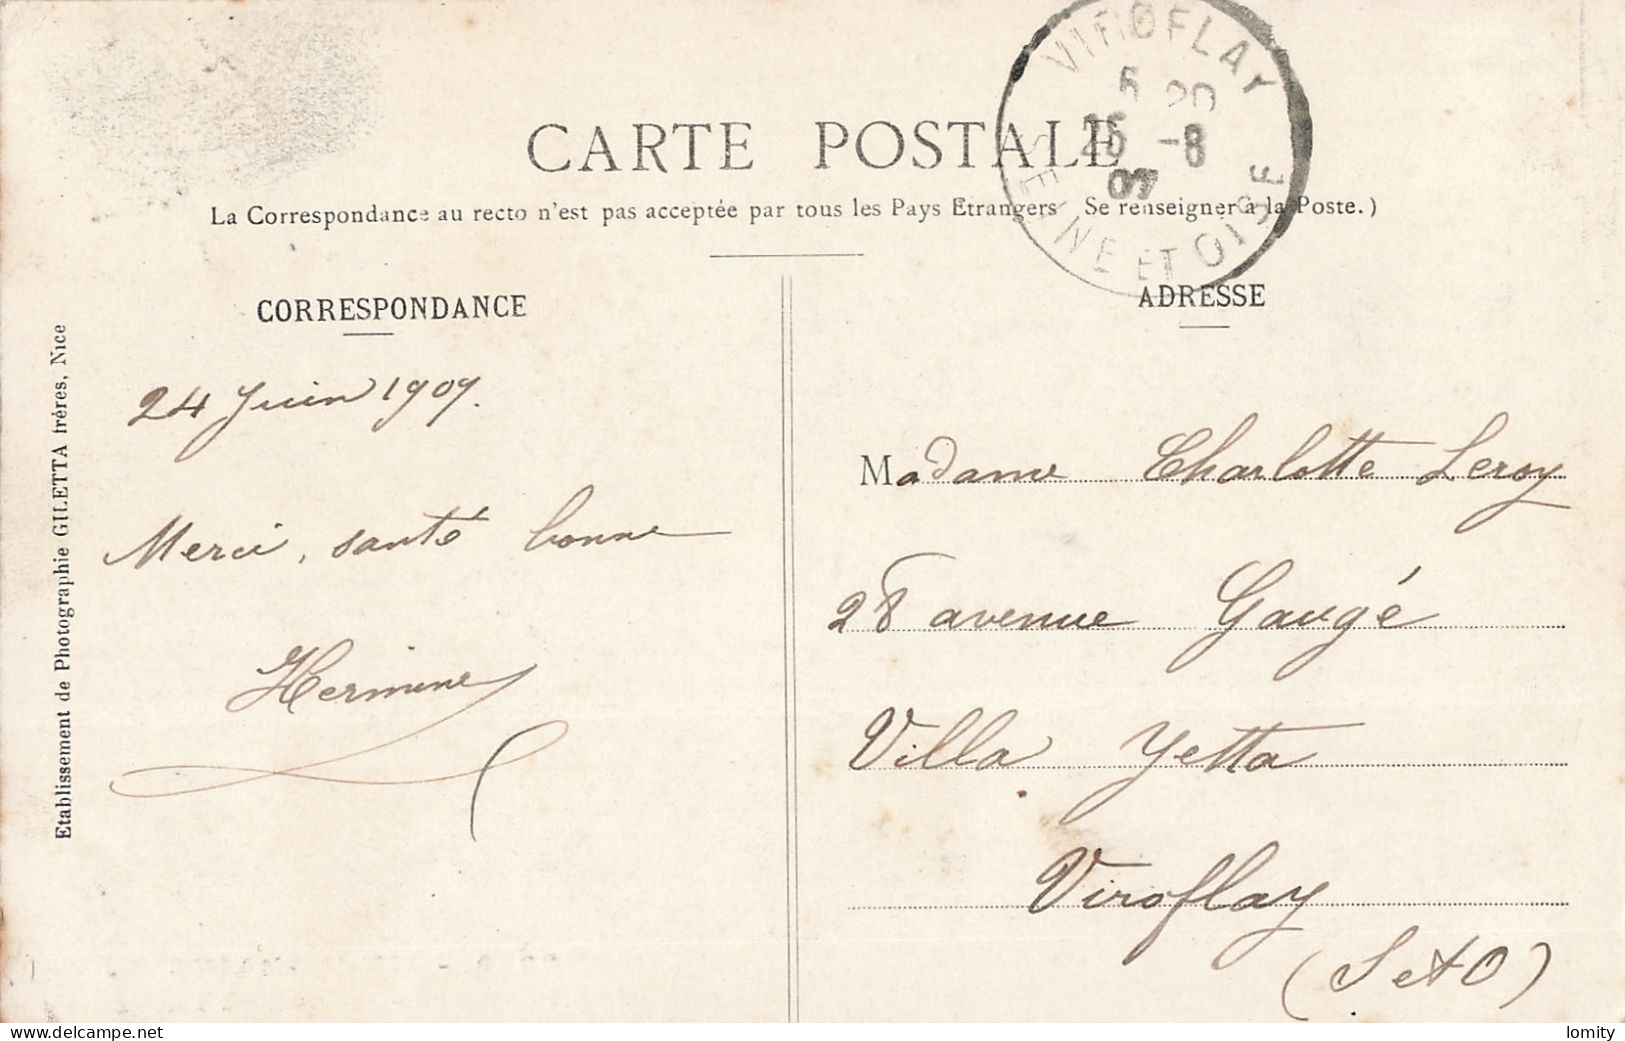 VIROFLAY
20
-8
07
SEINE ET OISE
CARTE POSTALE
La Correspondance au recto n'est pas acceptée par tous les Pays Etrangers Se renseigner à la Poste.)
CORRESPONDANCE
24 Juin 1907.
Merci, santé bonne
Hermine
Etablissement de Photographie GILETTA frères, Nice
ADRESSE
Madame Charlotte Leroy
28 avenue Gaugé
Villa Yetta
Viroflay
(S et O)
delcampe.net
lomity